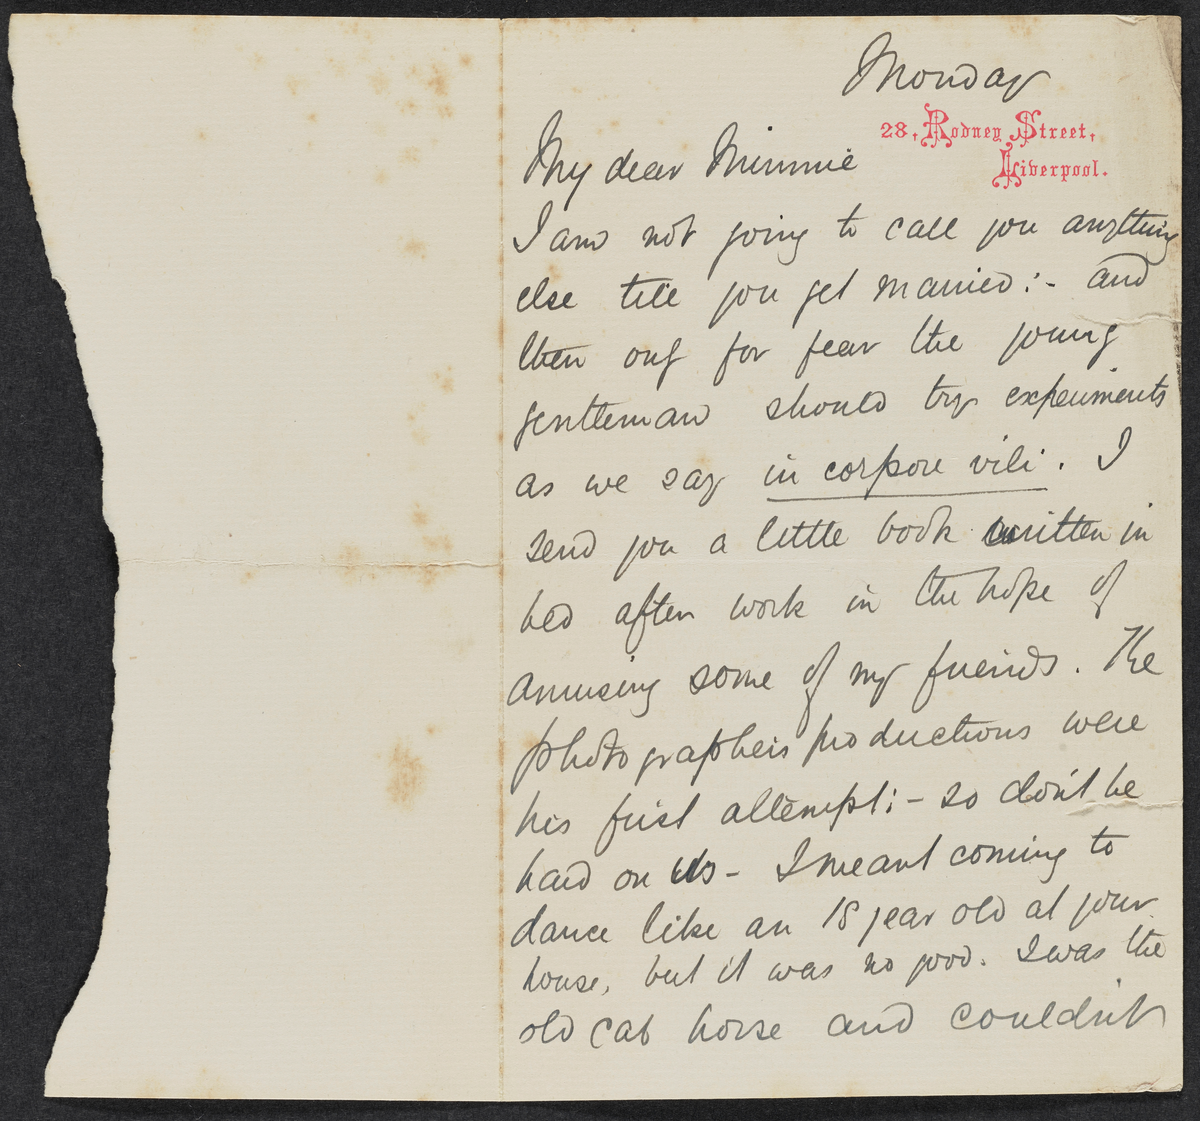 Monday
28, Rodney Street,
Liverpool.
My dear Minnie
I am not going to call you anything
else till you get married :- and
then only for fear the young
gentleman should try experiments
as we say in corpore vili. I
send you a little book written in
bed after work in the hope of
amusing some of my friends. The
photographers productions were
his first attempt :- so don't be
hard on us - I meant coming to
dance like an 18 year old at your
house, but it was no good. I was the
old cab horse and couldn't